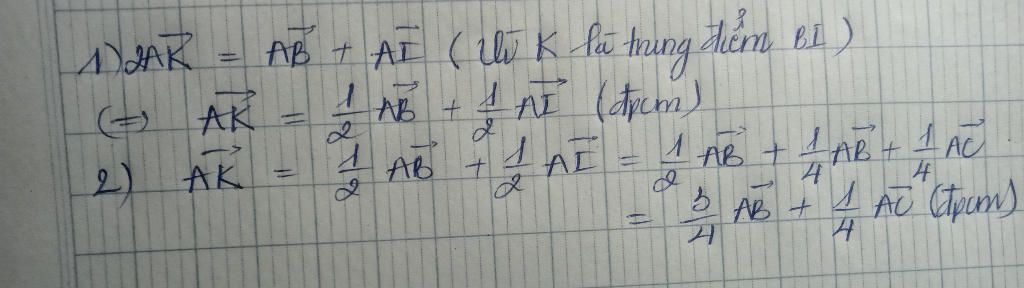 1) 2AK⃗ = AB⃗ + AI⃗ (Vì K là trung điểm BI)
(=) AK⃗ = 1/2 AB⃗ + 1/2 AI⃗ (đpcm)
2) AK⃗ = 1/2 AB⃗ + 1/2 AI⃗ = 1/2 AB⃗ + 1/4 AB⃗ + 1/4 AC⃗
= 3/4 AB⃗ + 1/4 AC⃗ (đpcm)